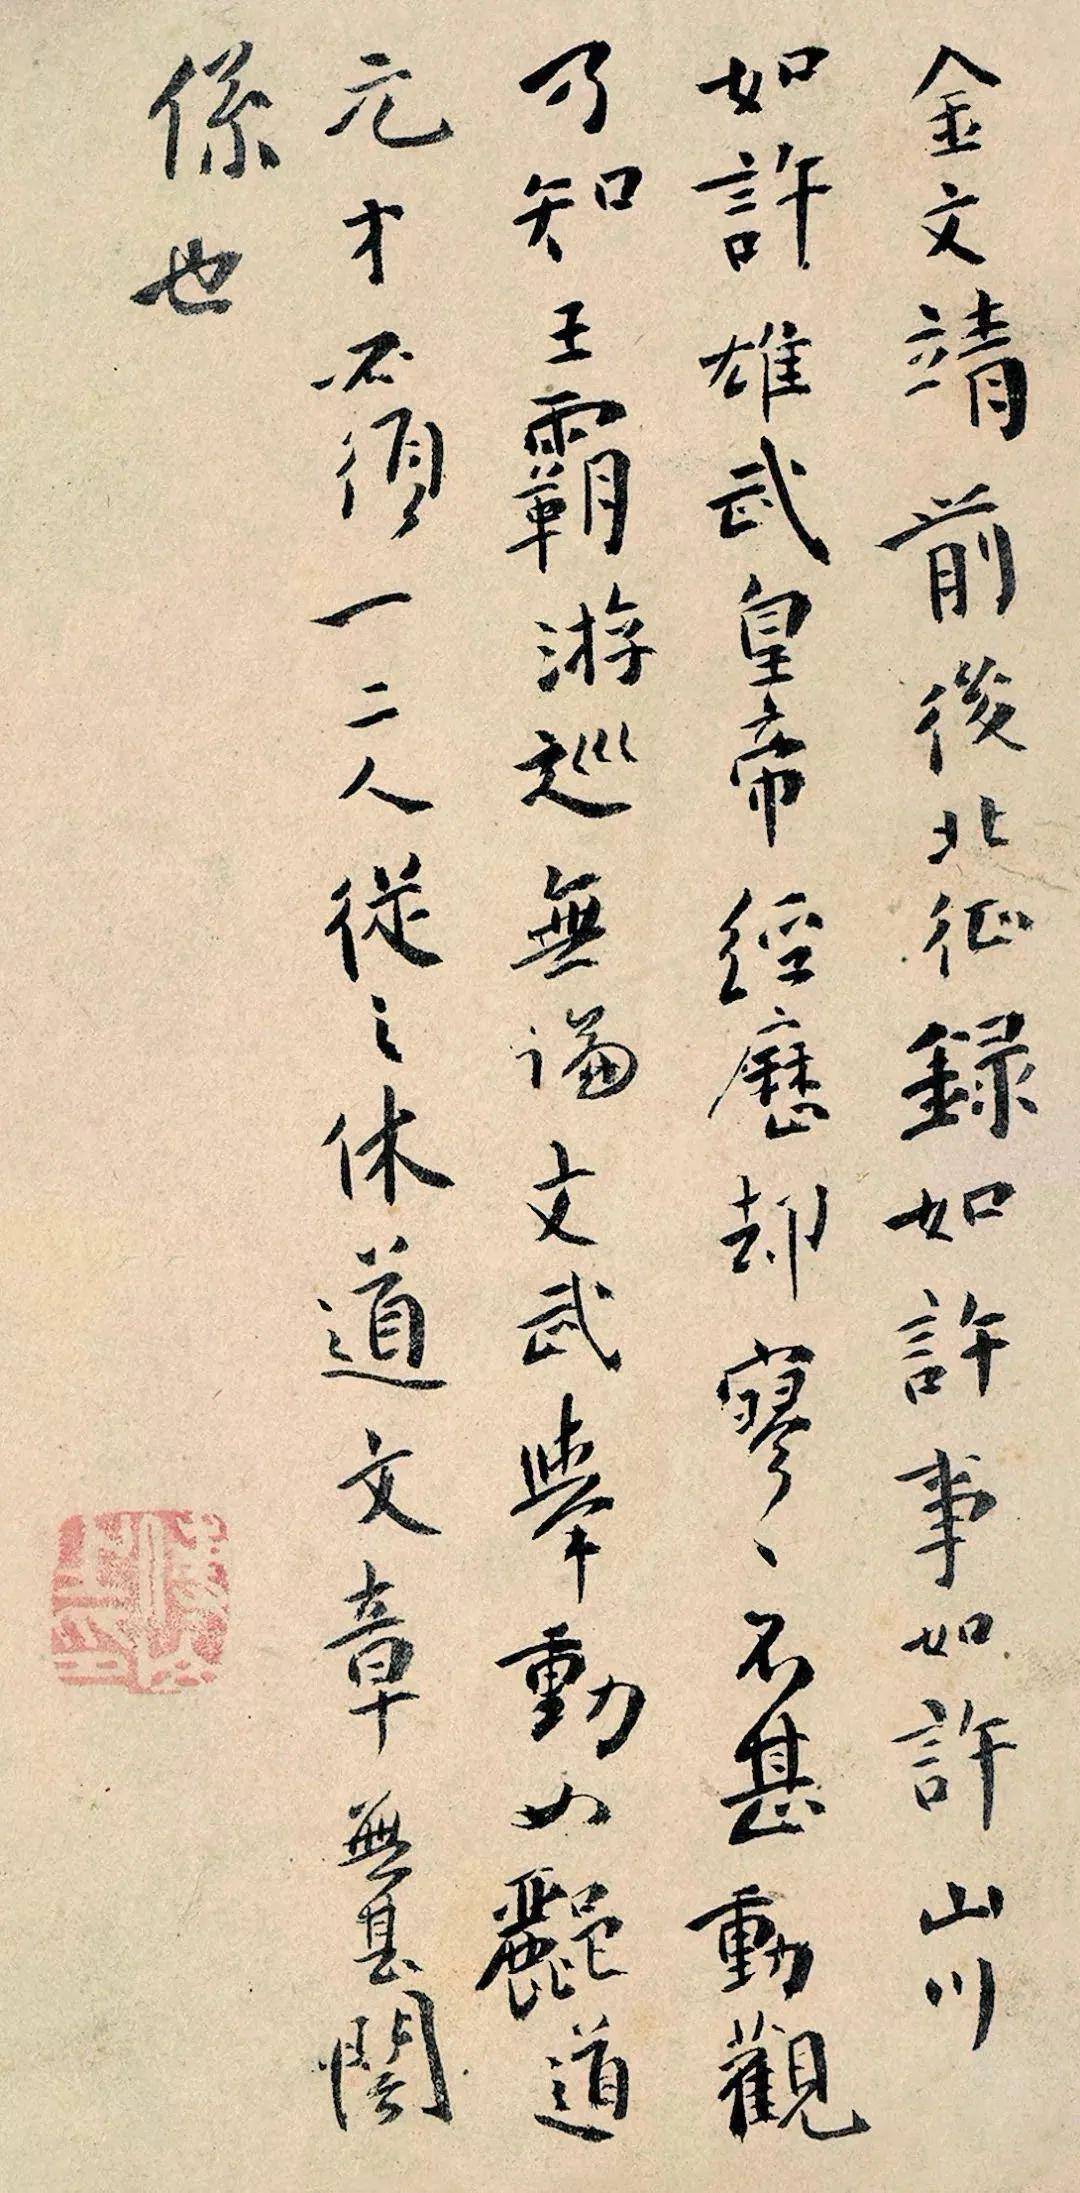 金文靖前後北征錄如許事如許山川
如許雄武皇帝經歷却寥〻不甚動觀
乃知王霸游巡無論文武舉動如酈道
元才不須一二人從之休道文章無甚関
係也